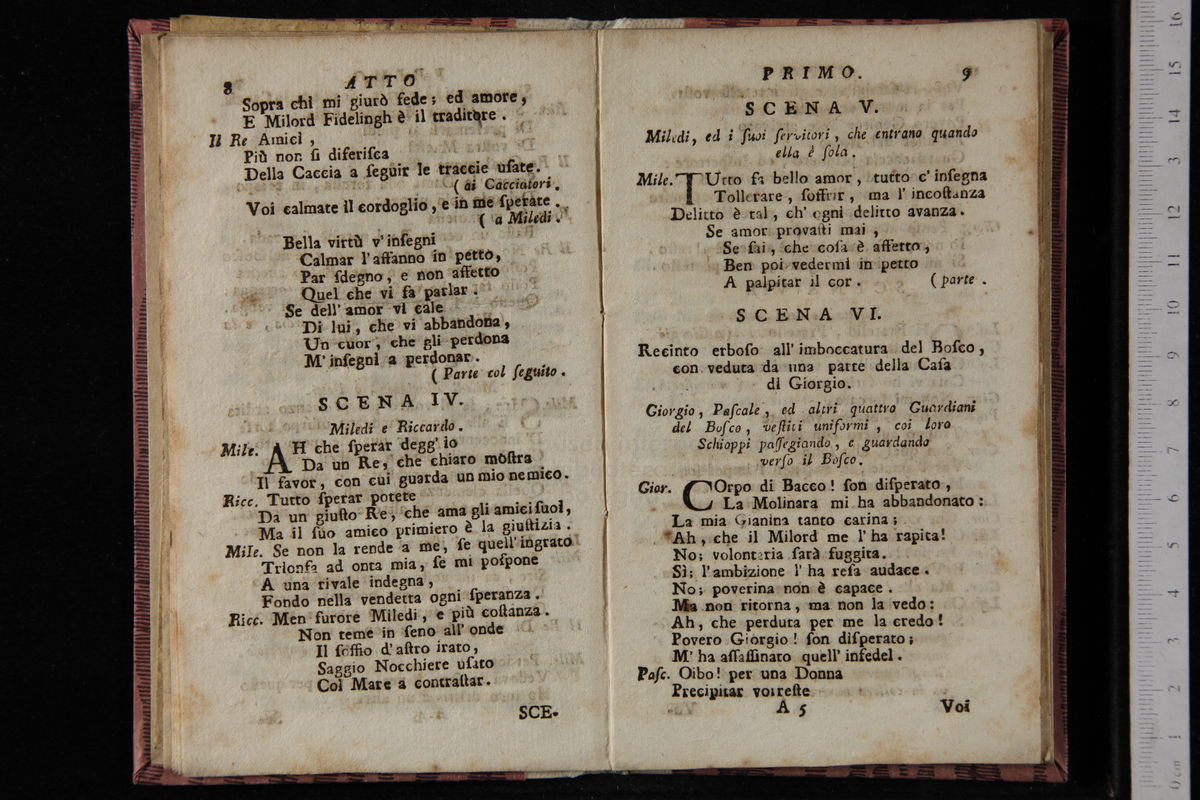 8 ATTO
Sopra chi mi giurò fede; ed amore,
E Milord Fidelingh è il traditore.
Il Re Amici,
Più non ſi diferiſca
Della Caccia a ſeguir le traccie uſate.
( ai Cacciatori.
Voi calmate il cordoglio, e in me ſperate.
( a Miledi.
Bella virtù v'inſegni
Calmar l'affanno in petto,
Par ſdegno, e non affetto
Quel che vi fa parlar.
Se dell'amor vi cale
Di lui, che vi abbandona,
Un cuor, che gli perdona
M'inſegni a perdonar.
( Parte col ſeguito.
SCENA IV.
Miledi e Riccardo.
Mile. AH che ſperar degg'io
Da un Re, che chiaro moſtra
Il favor, con cui guarda un mio nemico.
Ricc. Tutto ſperar potete
Da un giuſto Re, che ama gli amici ſuoi,
Ma il ſuo amico primiero è la giuſtizia.
Mile. Se non la rende a me, ſe quell'ingrato
Trionfa ad onta mia, ſe mi poſpone
A una rivale indegna,
Fondo nella vendetta ogni ſperanza.
Ricc. Men furore Miledi, e più coſtanza.
Non teme in ſeno all'onde
Il ſoffio d'aſtro irato,
Saggio Nocchiere uſato
Col Mare a contraſtar.
SCE-
PRIMO. 9
SCENA V.
Miledi, ed i ſuoi ſervitori, che entrano quando
ella è ſola.
Mile. TUtto fa bello amor, tutto c'inſegna
Tollerare, ſoffrir, ma l'incoſtanza
Delitto è tal, ch'ogni delitto avanza.
Se amor provaſti mai,
Se ſai, che coſa è affetto,
Ben poi vedermi in petto
A palpitar il cor. (parte.
SCENA VI.
Recinto erboſo all'imboccatura del Boſco,
con veduta da una parte della Caſa
di Giorgio.
Giorgio, Paſcale, ed altri quattro Guardiani
del Boſco, veſtiti uniformi, coi loro
Schioppi paſſegiando, e guardando
verſo il Boſco.
Gior. COrpo di Bacco! ſon diſperato,
La Molinara mi ha abbandonato:
La mia Gianina tanto carina;
Ah, che il Milord me l'ha rapita!
No; volontaria ſarà fuggita.
Sì; l'ambizione l'ha reſa audace.
No; poverina non è capace.
Ma non ritorna, ma non la vedo:
Ah, che perduta per me la credo!
Povero Giorgio! ſon diſperato;
M'ha aſſaſſinato quell'infedel.
Paſc. Oibo! per una Donna
Precipitar voireſte
A 5 Voi